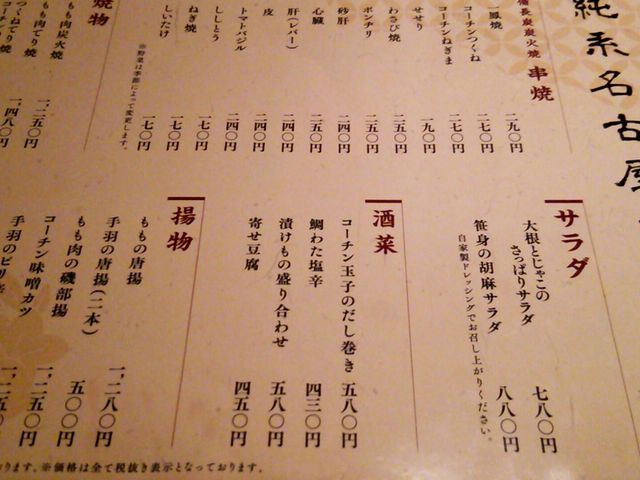 純系名古屋
備長炭炭火焼 串焼
一鳳焼 二九〇円
コーチンつくね 二七〇円
コーチンねぎま 二七〇円
せせり 一九〇円
わさび焼 二五〇円
ボンヂリ 二五〇円
砂肝 二四〇円
心臓 二五〇円
肝(レバー) 二四〇円
皮 二四〇円
トマトバジル 二四〇円
ししとう 一七〇円
ねぎ焼 一七〇円
しいたけ 一七〇円
※野菜は季節によって変更します。
焼物
もも肉炭火焼
もも肉てり焼 一、二五〇円
つくねてり焼 一、四八〇円
サラダ
大根とじゃこの
さっぱりサラダ 七八〇円
笹身の胡麻サラダ 八八〇円
自家製ドレッシングでお召し上がりください。
酒菜
コーチン玉子のだし巻き 五八〇円
鯛わた塩辛 四三〇円
漬けもの盛り合わせ 五八〇円
寄せ豆腐 四五〇円
揚物
ももの唐揚 一、二八〇円
手羽の唐揚(二本) 五〇〇円
もも肉の磯部揚 一、二五〇円
コーチン味噌カツ 一、二五〇円
手羽のピリ
おります。※価格は全て税抜き表示となっております。